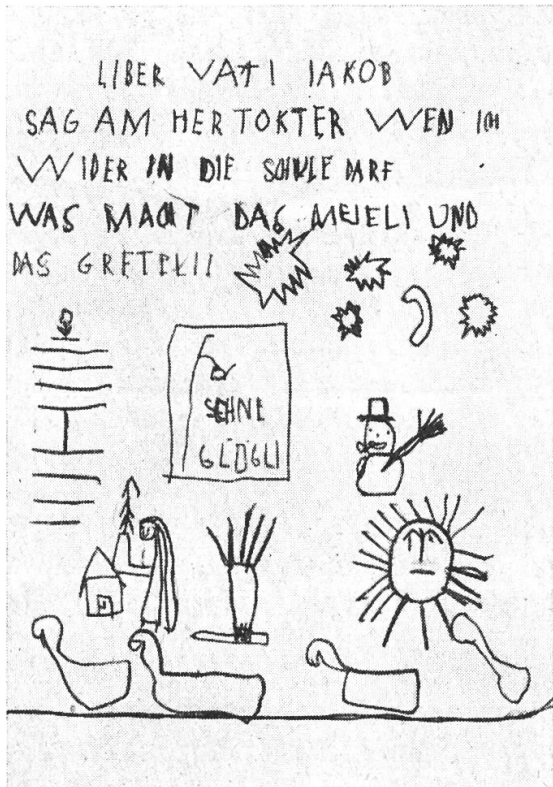 LIBER VATI IAKOB
SAG AM HERTOKTER WEN ICH
WIDER IN DIE SCHULE DARF.
WAS MACHT DAS MEIELI UND
DAS GRETELI!
SCHNE
GLÖGLI